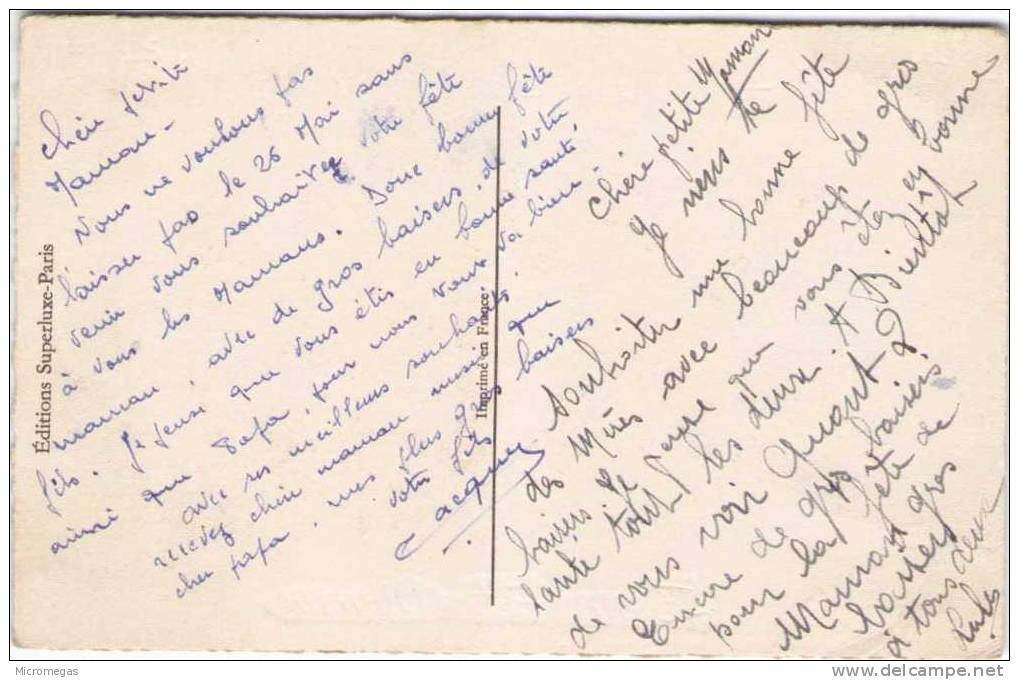 Chère petite
Maman.
Nous ne voulons pas
laisser pas le 26 Mai sans
venir vous souhaitez votre fête
à vous les Mamans. Donc bonne fête
maman, avec de gros baisers, de votre
fils. Je pense que vous êtes en bonne santé
ainsi que Papa, pour nous tous va bien.
avec ses meilleurs souhaits
recevez chère maman ainsi que
cher papa. nos plus gros baisers
votre fils
Jacques
Éditions Superluxe-Paris
Imprimé en France
Chère petite Maman
Je viens te
souhaiter une bonne fête
des Mères avec beaucoup de gros
baisers Je pense que vous êtes en bonne
santé tout les deux A Bientôt
de vous voir Quant
Encore de gros baisers
pour la fête de
Maman gros
baisers
à tous deux
Micromegas
www.delcampe.net